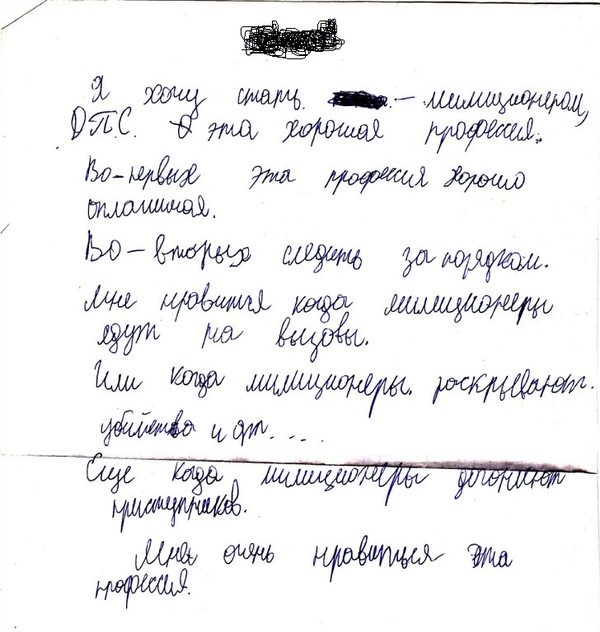 Я хочу стать. – милиционером,
Д.П.С. эта хорошая профессия.
Во-первых эта профессия хорошо
оплатиная.
Во – вторых следить за порядком.
Мне нравится когда милиционеры
едут на вызовы.
Или когда милиционеры. роскрывают.
убийства и др. ....
Еще когда милиционеры догоняют
приступников.
Мне очень нравиться эта
профессия.